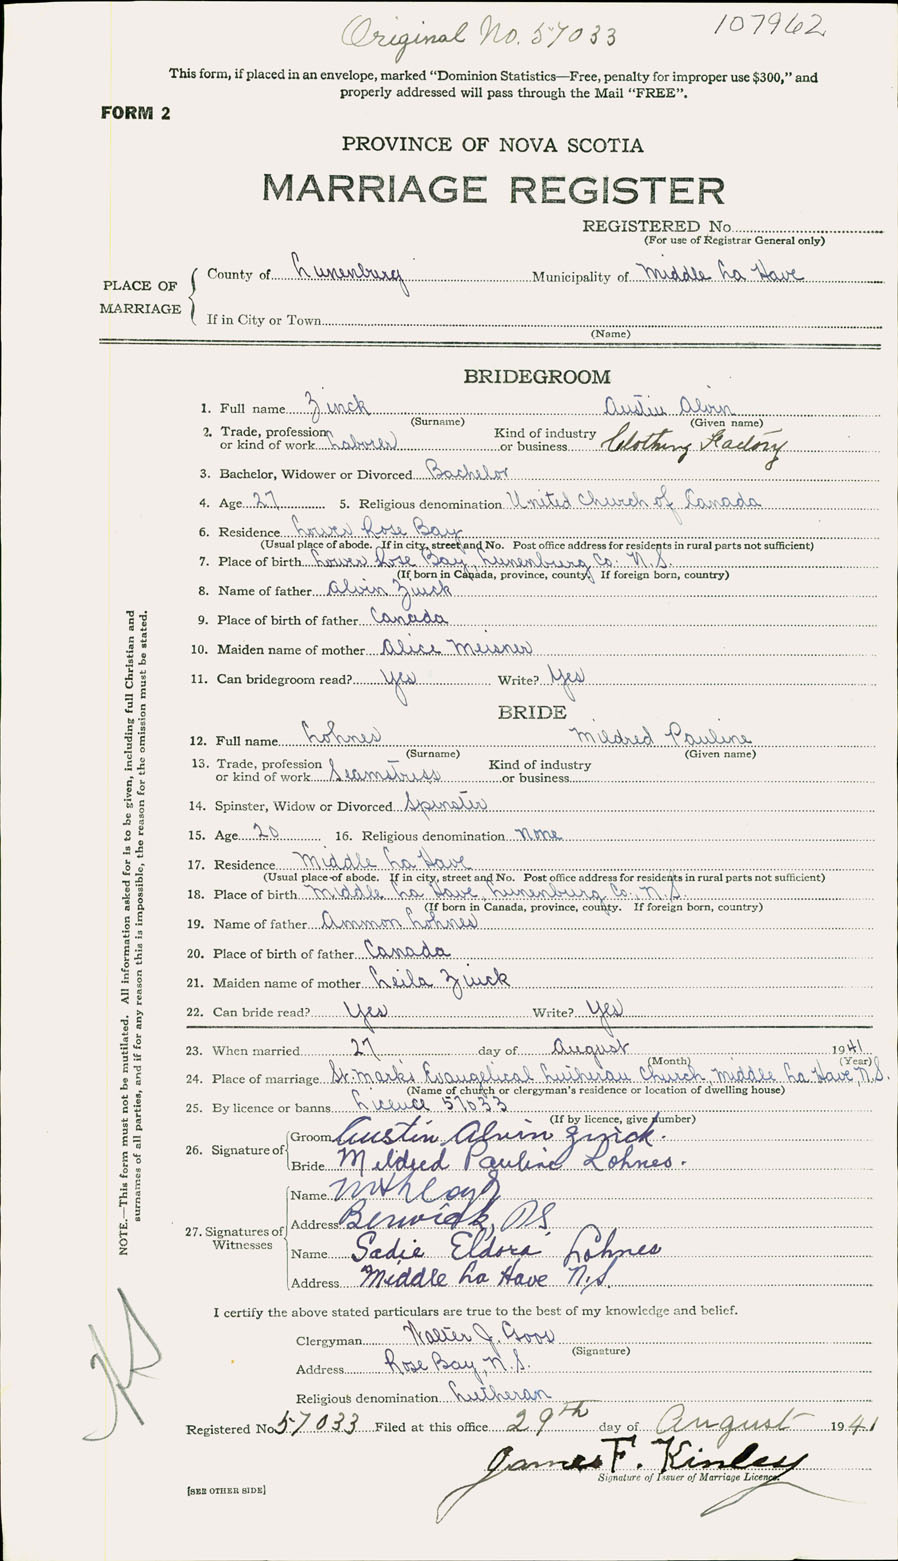 Original No. 57033 107962
This form, if placed in an envelope, marked "Dominion Statistics—Free, penalty for improper use $300," and
properly addressed will pass through the Mail "FREE".
FORM 2
PROVINCE OF NOVA SCOTIA
MARRIAGE REGISTER
REGISTERED No
(For use of Registrar General only)
PLACE OF MARRIAGE
County of Lunenburg Municipality of Middle La Have
If in City or Town
(Name)
BRIDEGROOM
1. Full name Zinck Austin Alvin
(Surname) (Given name)
2. Trade, profession or kind of work Laborer Kind of industry or business Clothing Factory
3. Bachelor, Widower or Divorced Bachelor
4. Age 27 5. Religious denomination United Church of Canada
6. Residence Lower Rose Bay
(Usual place of abode. If in city, street and No. Post office address for residents in rural parts not sufficient)
7. Place of birth Lower Rose Bay, Lunenburg Co. N.S.
(If born in Canada, province, county. If foreign born, country)
8. Name of father Alvin Zinck
9. Place of birth of father Canada
10. Maiden name of mother Alice Meisner
11. Can bridegroom read? Yes Write? Yes
BRIDE
12. Full name Lohnes Mildred Pauline
(Surname) (Given name)
13. Trade, profession or kind of work Seamstress Kind of industry or business
14. Spinster, Widow or Divorced Spinster
15. Age 20 16. Religious denomination None
17. Residence Middle La Have
(Usual place of abode. If in city, street and No. Post office address for residents in rural parts not sufficient)
18. Place of birth Middle La Have, Lunenburg Co., N.S.
(If born in Canada, province, county. If foreign born, country)
19. Name of father Ammon Lohnes
20. Place of birth of father Canada
21. Maiden name of mother Leila Zinck
22. Can bride read? Yes Write? Yes
23. When married 27 day of August 1941
(Month) (Year)
24. Place of marriage St. Mark's Evangelical Lutheran Church, Middle La Have, N.S.
(Name of church or clergyman's residence or location of dwelling house)
25. By licence or banns Licence 57033
(If by licence, give number)
26. Signature of Groom Austin Alvin Zinck.
Bride Mildred Pauline Lohnes.
27. Signatures of Witnesses
Name
Address Berwick, NS
Name Sadie Eldora Lohnes
Address Middle La Have N.S.
I certify the above stated particulars are true to the best of my knowledge and belief.
Clergyman Walter J. Goos
(Signature)
Address Rose Bay, N.S.
Religious denomination Lutheran
Registered No 57033 Filed at this office 29th day of August 1941
James F. Kinley
Signature of Issuer of Marriage Licence.
[SEE OTHER SIDE]
NOTE.—This form must not be mutilated. All information asked for is to be given, including full Christian and
surnames of all parties, and if for any reason this is impossible, the reason for the omission must be stated.